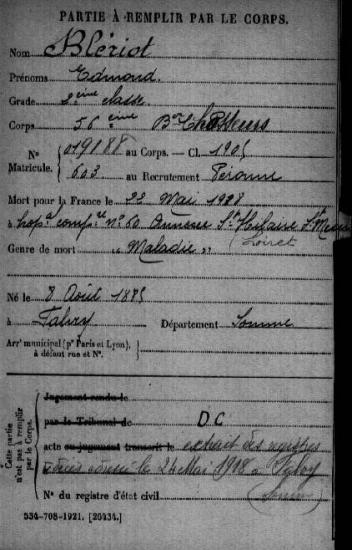 PARTIE À REMPLIR PAR LE CORPS.
Nom Blériot
Prénoms Edmond.
Grade 2eme classe
Corps 56 eme Bon Chasseurs
N° 019188 au Corps. — Cl. 1905
Matricule. 603 au Recrutement Péronne
Mort pour la France le 22 Mai 1918
à hopal compre n° 60 Annexe St Hilaire St Mesmin
(Loiret
Genre de mort " Maladie "
Né le 8 Août 1885
à Falvy Département Somme
Arrt municipal (pr Paris et Lyon),
à défaut rue et N°.
Cette partie
n'est pas à remplir
par le Corps.
Jugement rendu le
par le Tribunal de D C
acte ou jugement transcrit le extrait des registres
le 24 Mai 1918 à Falvy
N° du registre d'état civil (Somme)
534-708-1921. [26434.]